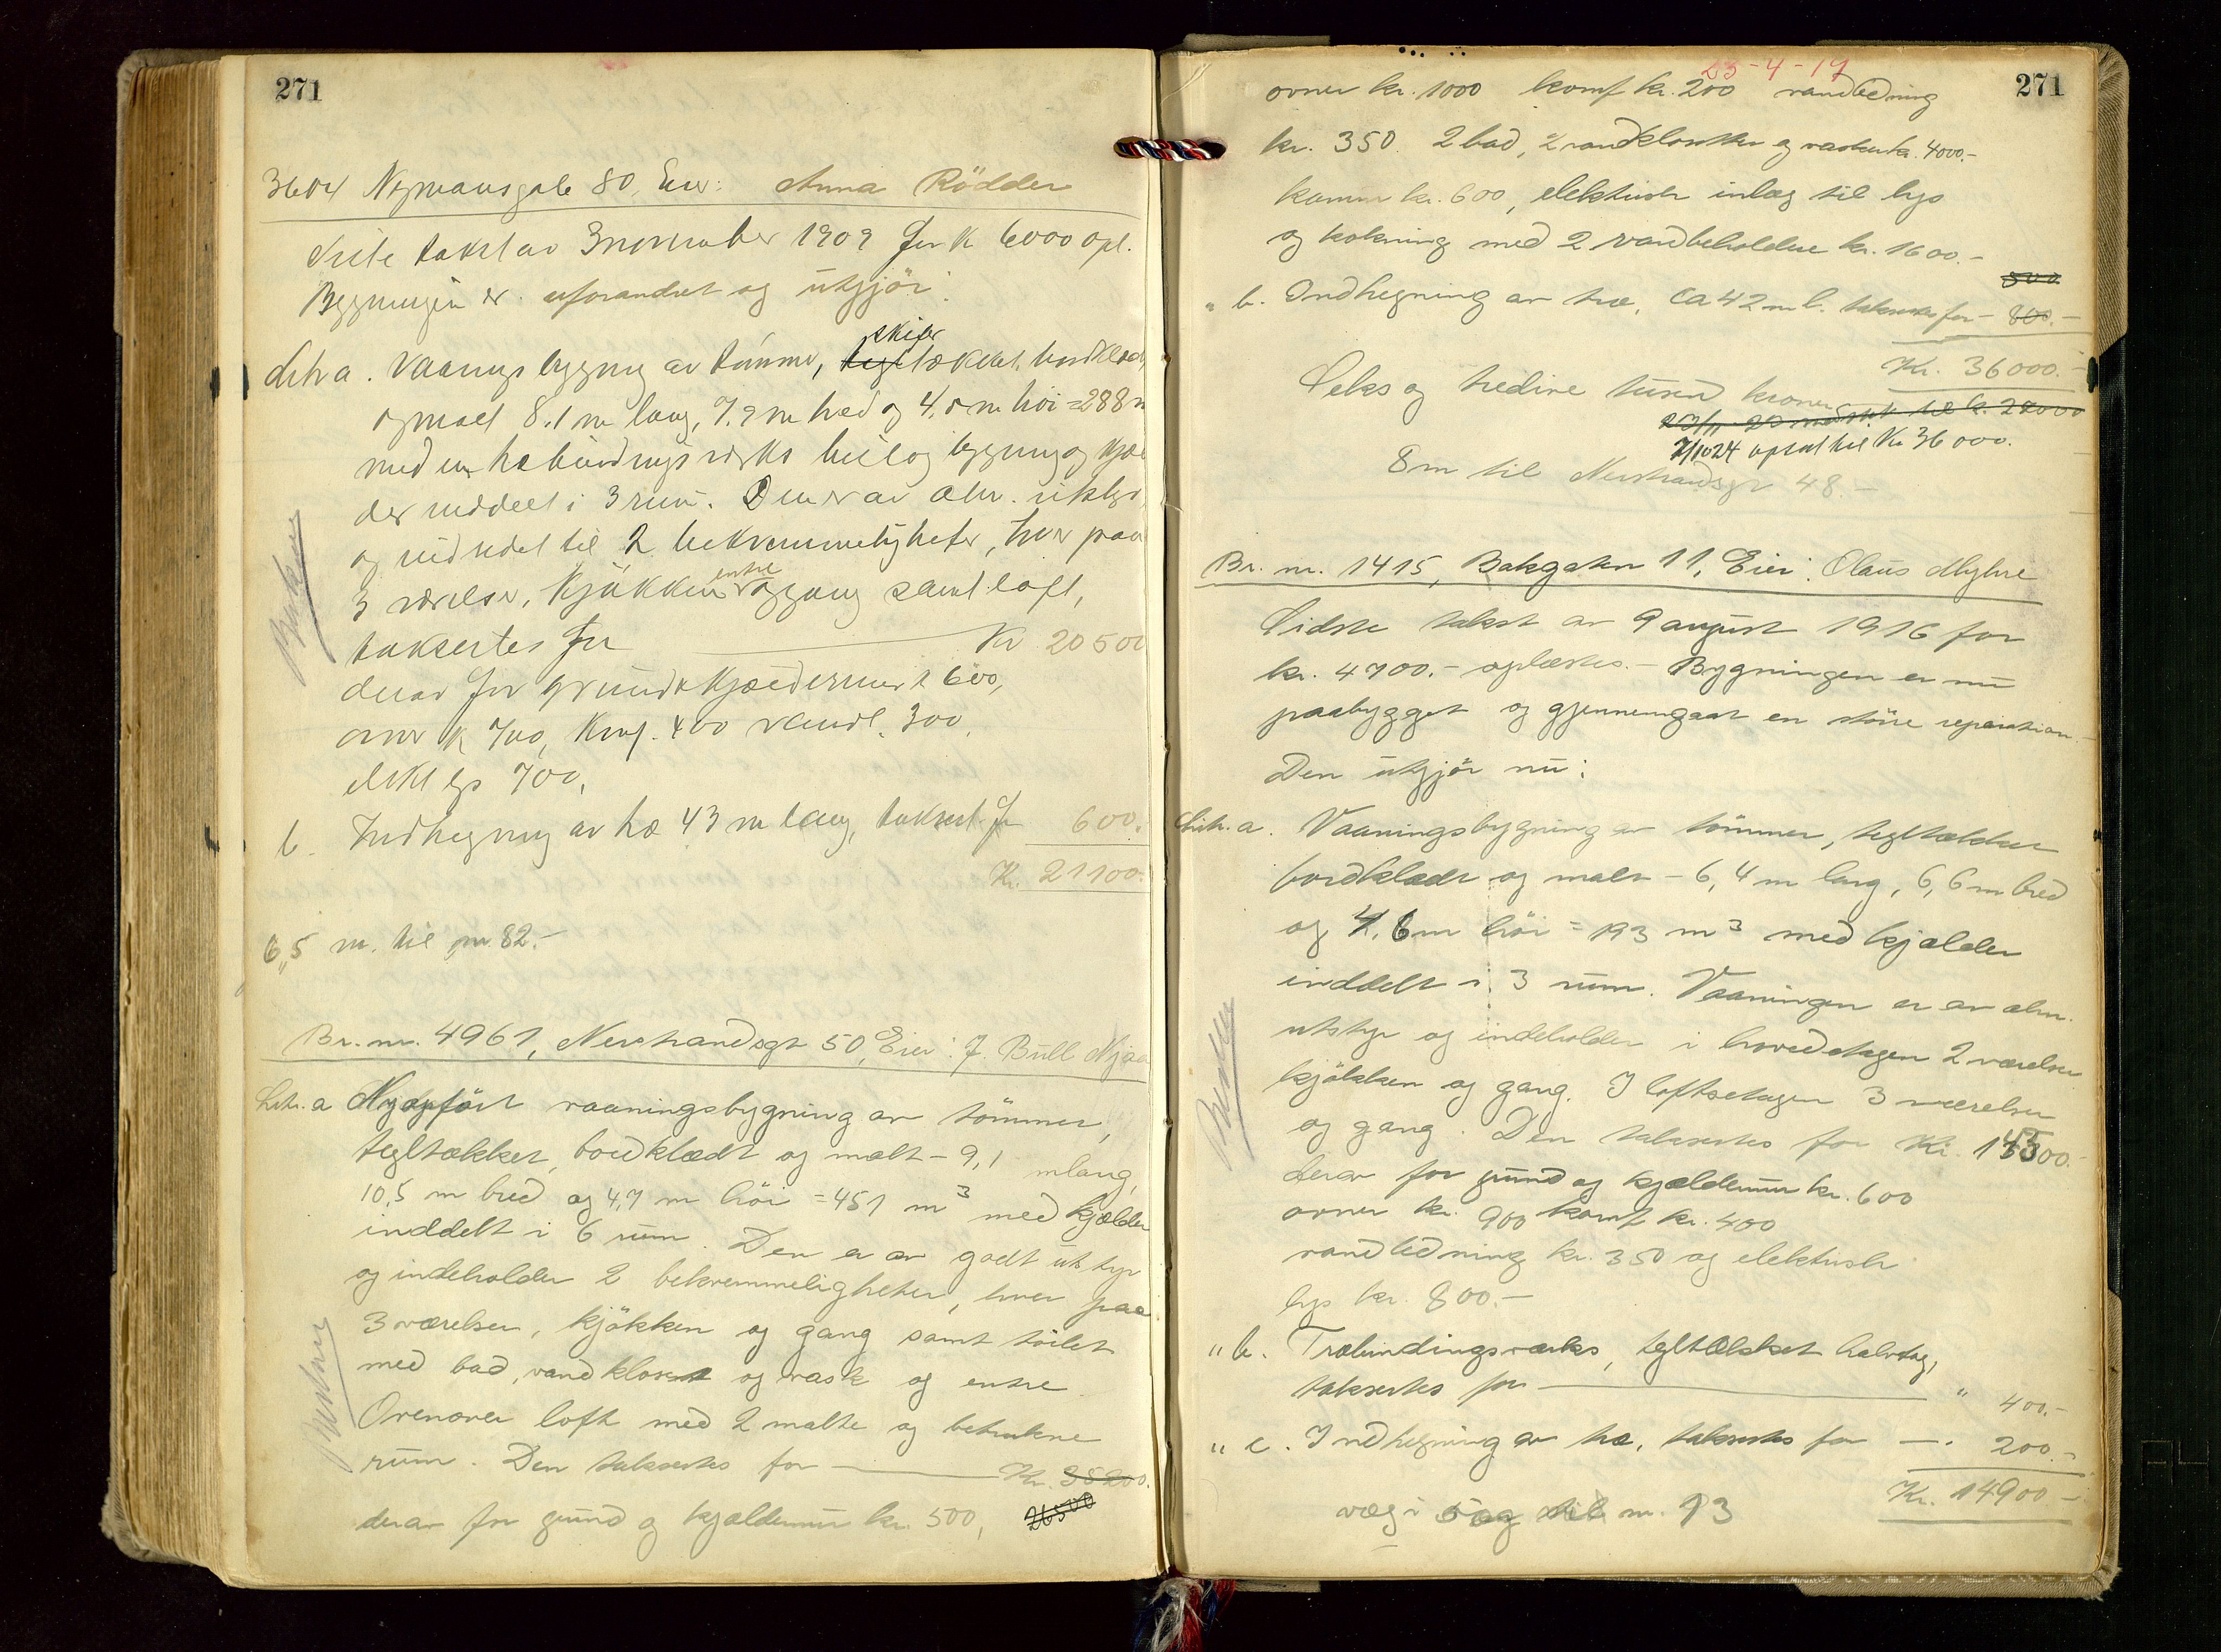 271
3604 Nymansgate 80, Eier: Anna Rödder
Siste takst av 3 november 1909 for K 6000 opl.
Bygningen er uforandret og utgjör:
Litr a. Vaaningsbygning av tömmer, skifer tegltækket, bordklæd
og malt 8.1 m lang, 7.9 m bred og 4.5 m höi = 288 m
med en træbindingsverks tilbygning og kjæl
der inddelt i 3 rum. Den er av alm. utstyr
og indredet til 2 bekvemmeligheter, hver paa
3 værelser, kjökken entre og gang samt loft,
taksertes for Kr 20500
derav for grund & kjældermur k 600,
ovner k 700, Komf. 400 vandl. 300,
elekt lys 700,
b. Indhegning av træ 43 m lang, taksert for 600.
Kr. 21100.
6,5 m. til nr 82.-
Br. nr. 4961, Nerstrandsgt 50, Eier: J. Bull Njaa
Litr. a Nyopfört vaaningsbygning av tömmer,
tegltækket, bordklædt og malt - 9,1 m lang,
10,5 m bred og 4,7 m höi = 451 m3 med kjælder
inddelt i 6 rum. Den er av godt utstyr
og indeholder 2 bekvemmeligheter, hver paa
3 værelser, kjökken og gang samt toilet
med bad, vandkloset og vask og entre.
Ovenover loft med 2 malte og betrukne
rum. Den taksertes for Kr. 35200.
derav for grund og kjældermur kr. 500, 26500
Brukne
23-4-19
271
ovner kr. 1000 komf kr. 200 vandledning
kr. 350. 2 bad, 2 vandklosetter og vasker kr. 4000.-
kammer kr. 600, elektrisk inlæg til lys
og kokning med 2 vandbeholdere kr. 1600.-
500
" b. Indhegning av træ, ca 42 m l. taksertes for - 800.-
Kr. 36000.-
Seks og tredive tusen kroner
nedsat til kr. 27000
7/10 24 opsat til Kr 36000.
8 m til Nerstrandsgt 48.-
Br. nr. 1415, Bakgaten 11, Eier: Olaus Myhre
Sidste takst av 9 august 1916 for
kr. 4700.- oplæstes. - Bygningen er nu
paabygget og gjennemgaat en större reparation.-
Den utgjör nu:
Litr. a. Vaaningsbygning av tömmer, tegltækket
bordklædt og malt - 6,4 m lang, 6,6 m bred
og 4,6 m höi = 193 m3 med kjælder
inddelt i 3 rum. Vaaningen er av alm.
utstyr og indeholder i hovedetagen 2 værelser
kjökken og gang. I loftsetagen 3 værelser
og gang. Den taksertes for Kr. 14300.-
derav for grund og kjældermur kr. 600
ovner kr. 900 komf kr. 400
vandledning kr. 350 og elektrisk
lys kr. 800.-
" b. Træbindingsverks, tegltækket halvtag,
taksertes for " 400.-
" c. Indhegning av træ, taksertes for - 200.-
Kr. 14900.-
væg i væg til nr. 13